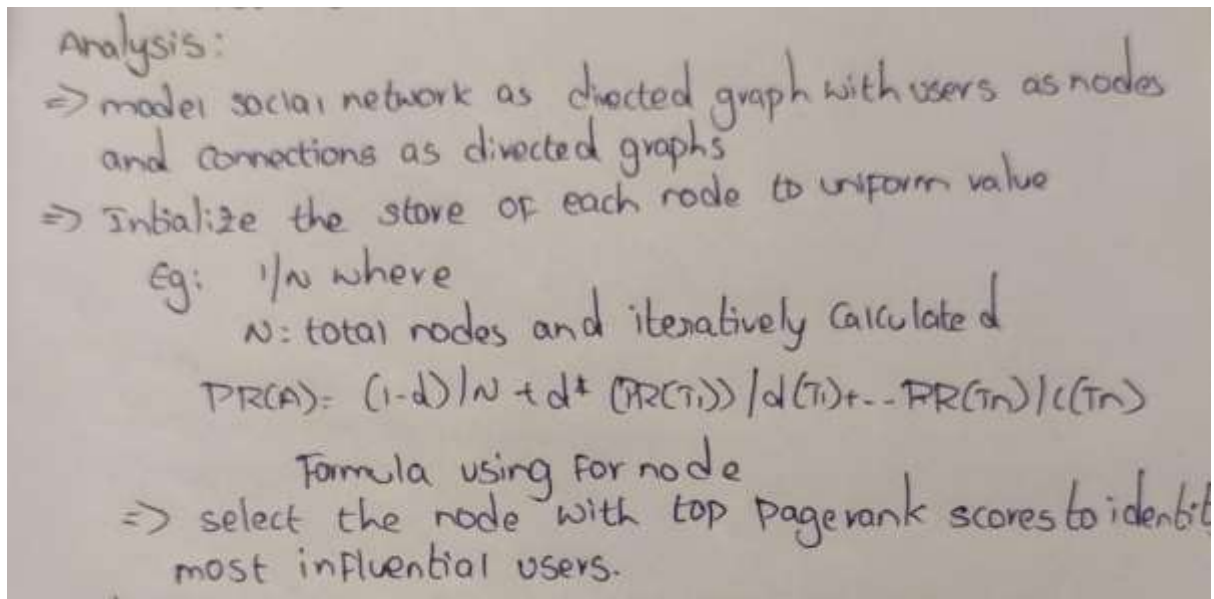 Analysis:
=> model social network as directed graph with users as nodes
and connections as directed graphs
=> Intialize the store of each node to uniform value
Eg: 1/N where
N: total nodes and iteratively calculated
PR(A)= (1-d)/N + d* (PR(T1))/d(T1)+-- PR(Tn)/C(Tn)
Formula using for node
=> select the node with top pagerank scores to identit
most influential users.